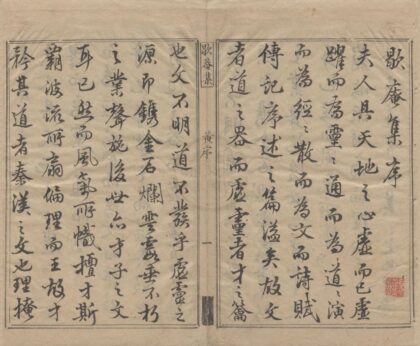 歇庵集序
夫人具天地之心虛而已虛
躍而為靈靈通而為道道演
而為經經散而為文而詩賦
傳記序述之篇溢矣故文
者道之器而虛靈者才之籥
歇菴集
黃序
一
也文不明道不發乎虛靈之
源即鐫金石爛雲霞垂不朽
之業聲施後世亦才子之文
耳已然而風氣所幟擅才斯
霸波流所扇偏理而王故才
矜其道者秦漢之文也理掩